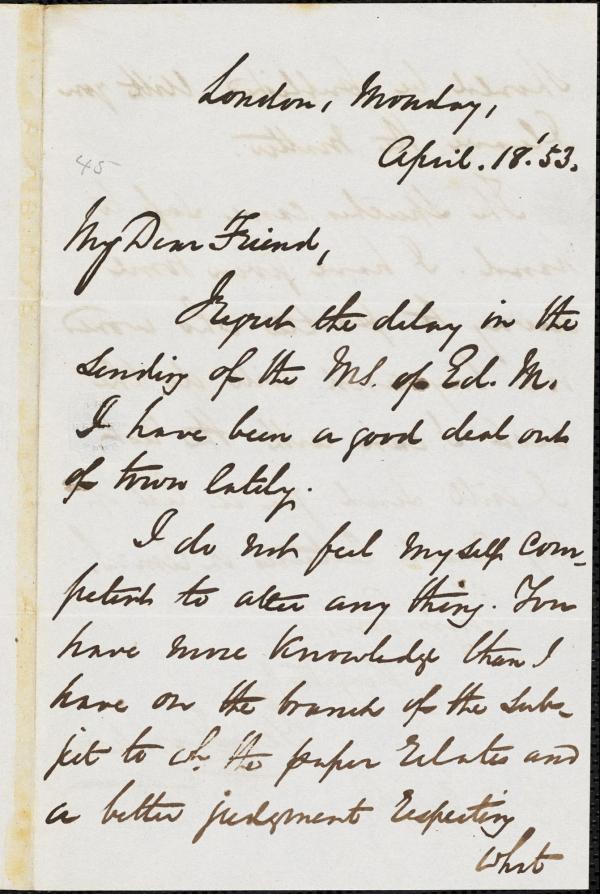 London, Monday,
April. 18. '53.
45
My Dear Friend,
I regret the delay in the
sending of the MS. of Ed. M.
I have been a good deal out
of town lately.
I do not feel myself com-
petent to alter any thing. You
have more knowledge than I
have on the branch of the sub-
ject to wh. the paper relates and
a better judgment respecting
what